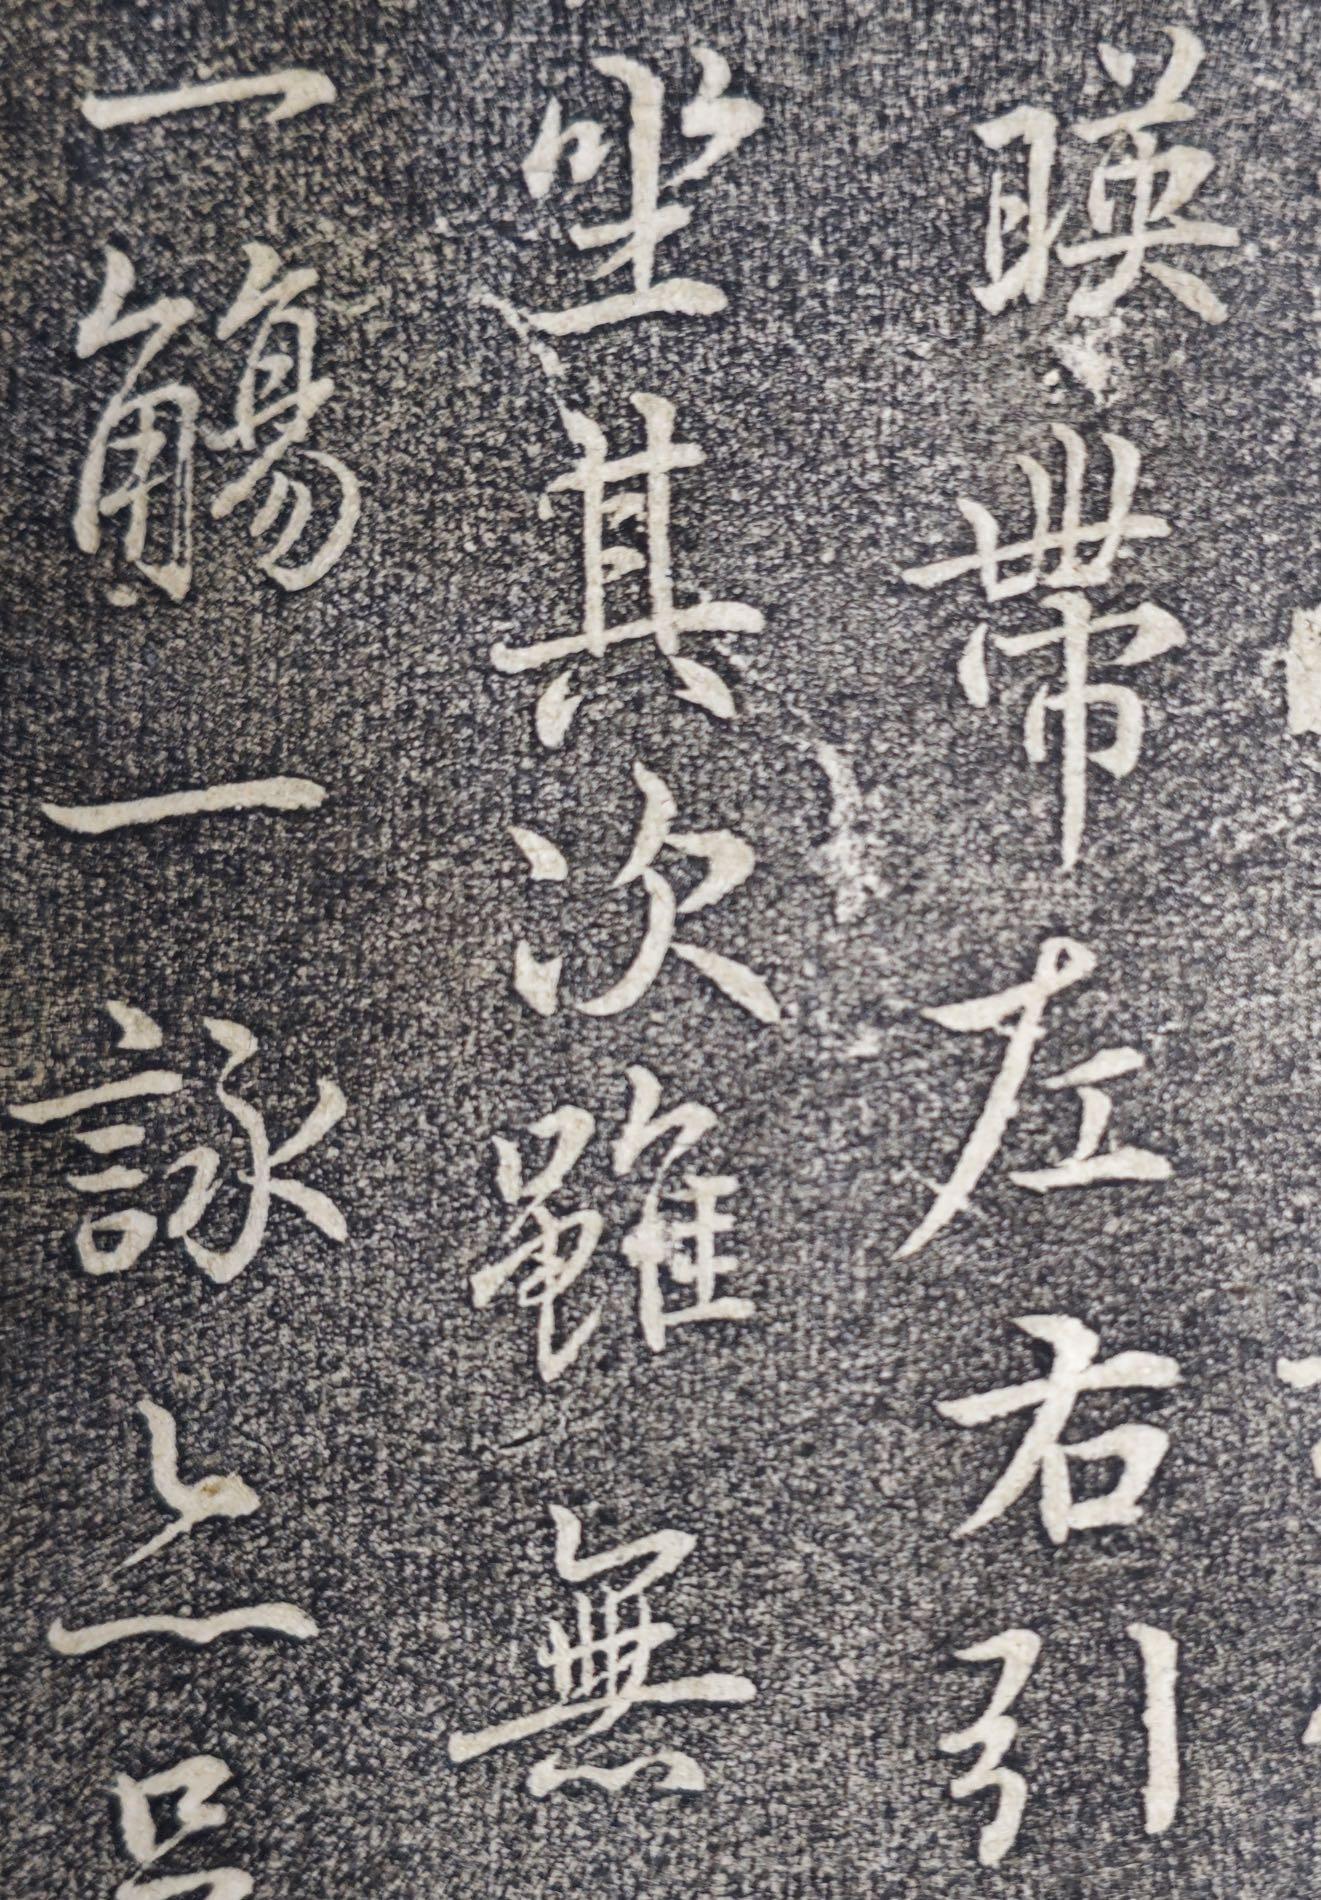 暎帶左右引
坐其次雖無
一觴一詠亦足